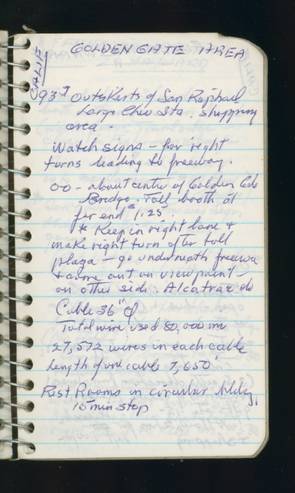 CALIF
GOLDEN GATE AREA
93⁷ Outskirts of San Raphael
Large Chev Sta. shopping
area.
Watch signs - for right
turns leading to freeway.
00 - about centre of Golden Gate
Bridge. Toll booth at
far end $1.25.
* Keep in right lane &
make right turn after toll
plaza - go underneath freeway
& come out on viewpoint
on other side. Alcatraz etc
Cable 36"
Total wire used 80,000 mi
27,572 wires in each cable
length of one cable 7,650'
Rest Rooms in circular bldg,
15 min stop